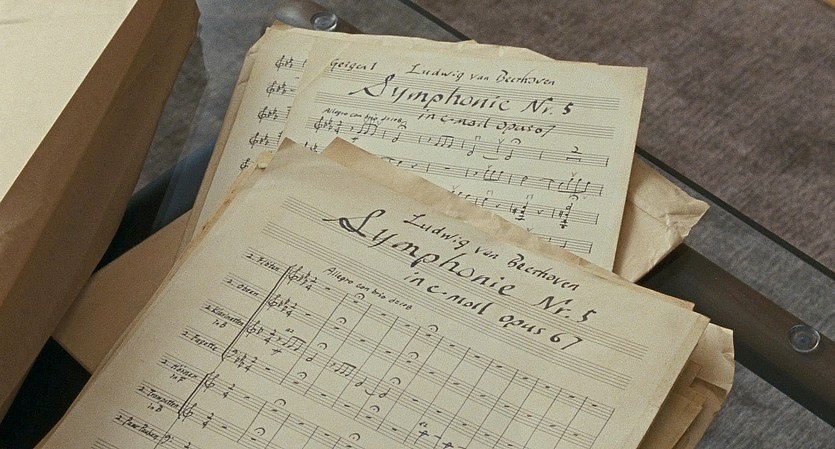 Geigen 1
Ludwig van Beethoven
Symphonie Nr. 5
in c-moll opus 67
Allegro con brio
Ludwig van Beethoven
Symphonie Nr. 5
in c-moll opus 67
Allegro con brio
2 Flöten
2 Oboen
2 Klarinetten
in B
2 Fagotte
2 Hörner
2 Trompeten
2 Paar Pauken